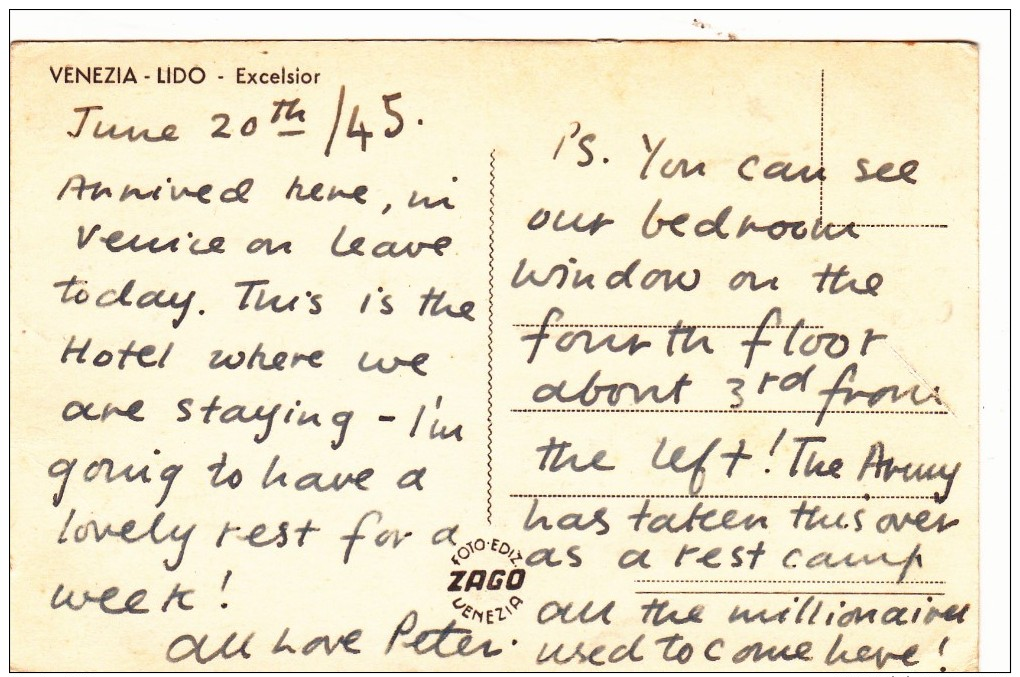 VENEZIA - LIDO - Excelsior
June 20th /45.
Arrived here, in
Venice on leave
today. This is the
Hotel where we
are staying - I'm
going to have a
lovely rest for a
week!
all Love Peter.
P.S. You can see
our bedroom
window on the
fourth floor
about 3rd from
the left! The Army
has taken this over
as a rest camp
all the millionaires
used to come here!
FOTO·EDIZ.
ZAGO
VENEZIA